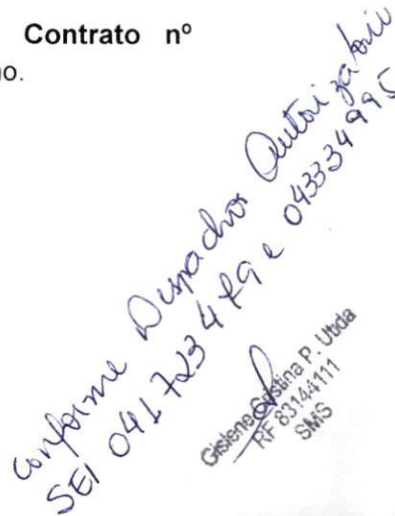 Contrato nº
o.
conforme Despachos Autorizatório
SEI 041723479 e 043334995
Gislene Cristina P. Utida
RF 83144111
SMS